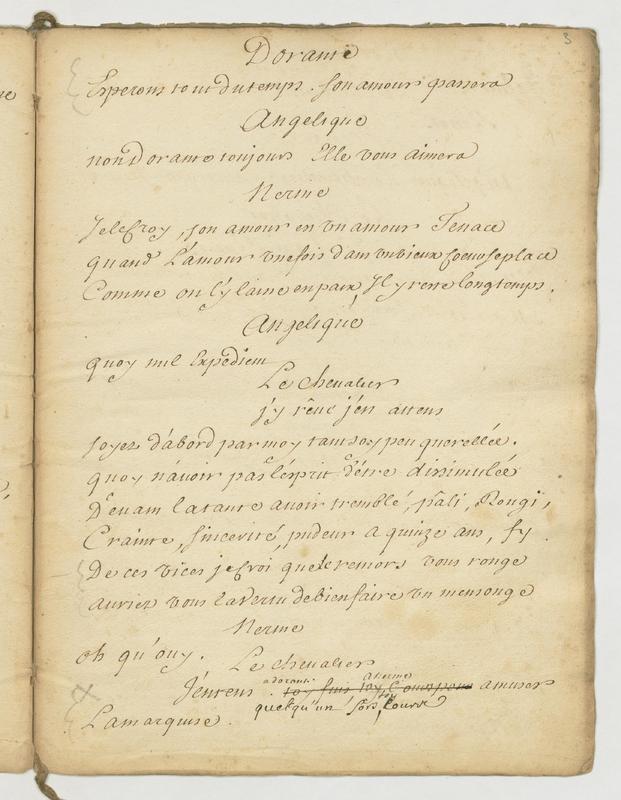 3
Dorante
Esperons tout du temps. son amour passera
Angelique
non Dorante toujours Elle vous aimera
Nerine
Je le Croy, son amour en un amour Tenace
quand L'amour une fois dans un vieux coeur se place
Comme on l'y laisse en paix, Il y reste longtemps.
Angelique
quoy nul Expedient
Le chevalier
j'y rêve j'en attens
soyez d'abord par moy tant soy peu querellée.
quoy n'avoir pas l'esprit d'être dissimulée
Devant la tante avoir tremblé, pâli, Rougi,
Crainte, sincerité, pudeur a quinze ans, fy.
De ces vices je croi, que le remors vous ronge
auriez vous la vertu de bien faire un mensonge
Nerine
oh qu'ouy.
Le chevalier
a dorante. a Nerine
J'entens. toy suis toy, Cours amuser
quelqu'un sors, toy cours
La marquise.